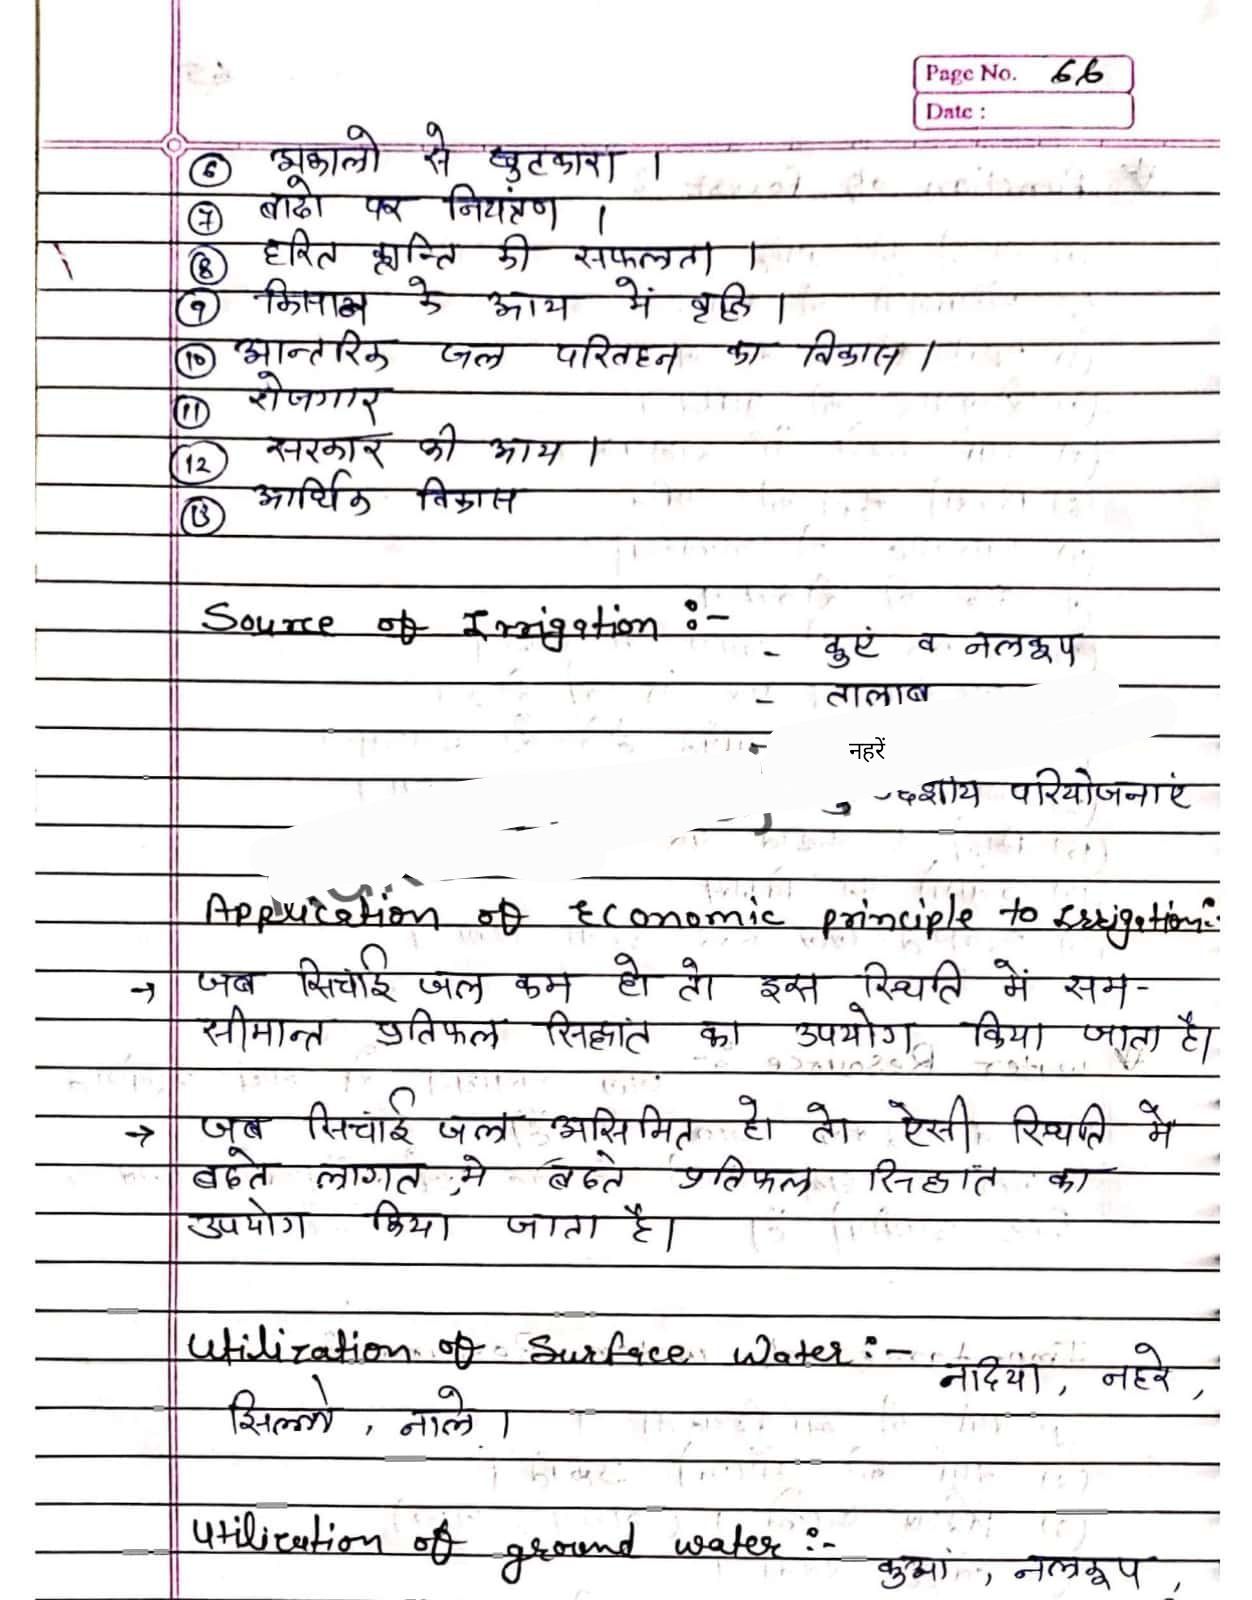 Page No. 66
Date :
⑥ अकालो से छुटकारा ।
⑦ बाढो पर नियंत्रण ।
⑧ हरित क्रान्ति की सफलता ।
⑨ किसान के आय में वृद्धि ।
⑩ आन्तरिक जल परिवहन का विकास ।
⑪ रोजगार
⑫ सरकार की आय ।
⑬ आर्थिक विकास
Source of Irrigation :-
- कुएं व नलकूप
- तालाब
- नहरें
परियोजनाएं
Application of Economic principle to Irrigation:-
→ जब सिचाई जल कम हो तो इस स्थिति में सम-
सीमान्त प्रतिफल सिद्धांत का उपयोग किया जाता है।
→ जब सिचांई जल असिमित हो तो ऐसी स्थिति में
बढते लागत मे बढते प्रतिफल सिद्धांत का
उपयोग किया जाता है।
Utilization of Surface Water :-
नदियां, नहरे,
झिल्लो, नाले ।
Utilization of ground water :-
कुआं, नलकूप,